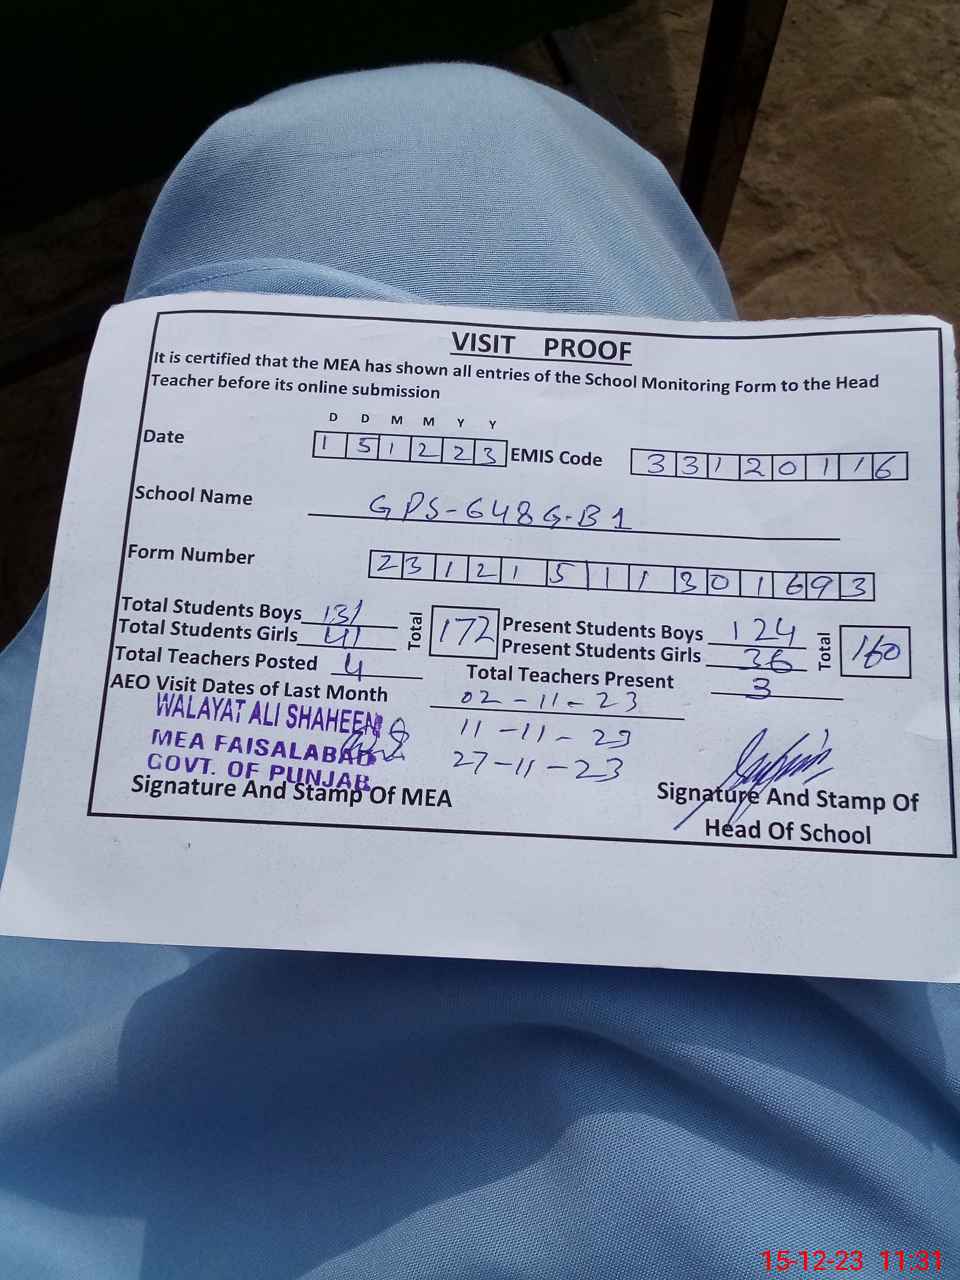 VISIT PROOF
It is certified that the MEA has shown all entries of the School Monitoring Form to the Head
Teacher before its online submission
D D M M Y Y
Date 151223 EMIS Code 33120116
School Name GPS-648G-B1
Form Number 23121511301693
Total Students Boys 131 Total 172 Present Students Boys 124 Total 160
Total Students Girls 41 Present Students Girls 36
Total Teachers Posted 4 Total Teachers Present 3
AEO Visit Dates of Last Month 02-11-23
WALAYAT ALI SHAHEEN 11-11-23
MEA FAISALABAD 27-11-23
GOVT. OF PUNJAB
Signature And Stamp Of MEA Signature And Stamp Of
Head Of School
15-12-23 11:31